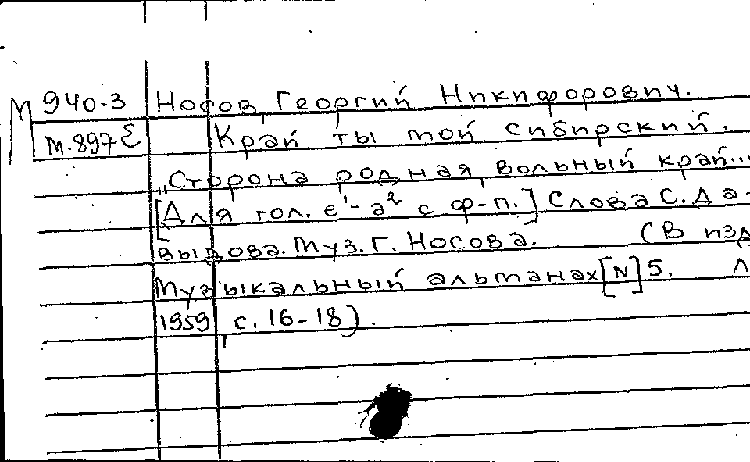 М 940-3 Носов, Георгий Никифорович.
м.897 Край ты мой сибирский.
"Сторона родная, вольный край...
[Для гол. e¹-a² с ф-п.] Слова С. Да-
выдова. Муз. Г. Носова. (В изд
Музыкальный альманах [N] 5. Л
1959, с. 16-18).